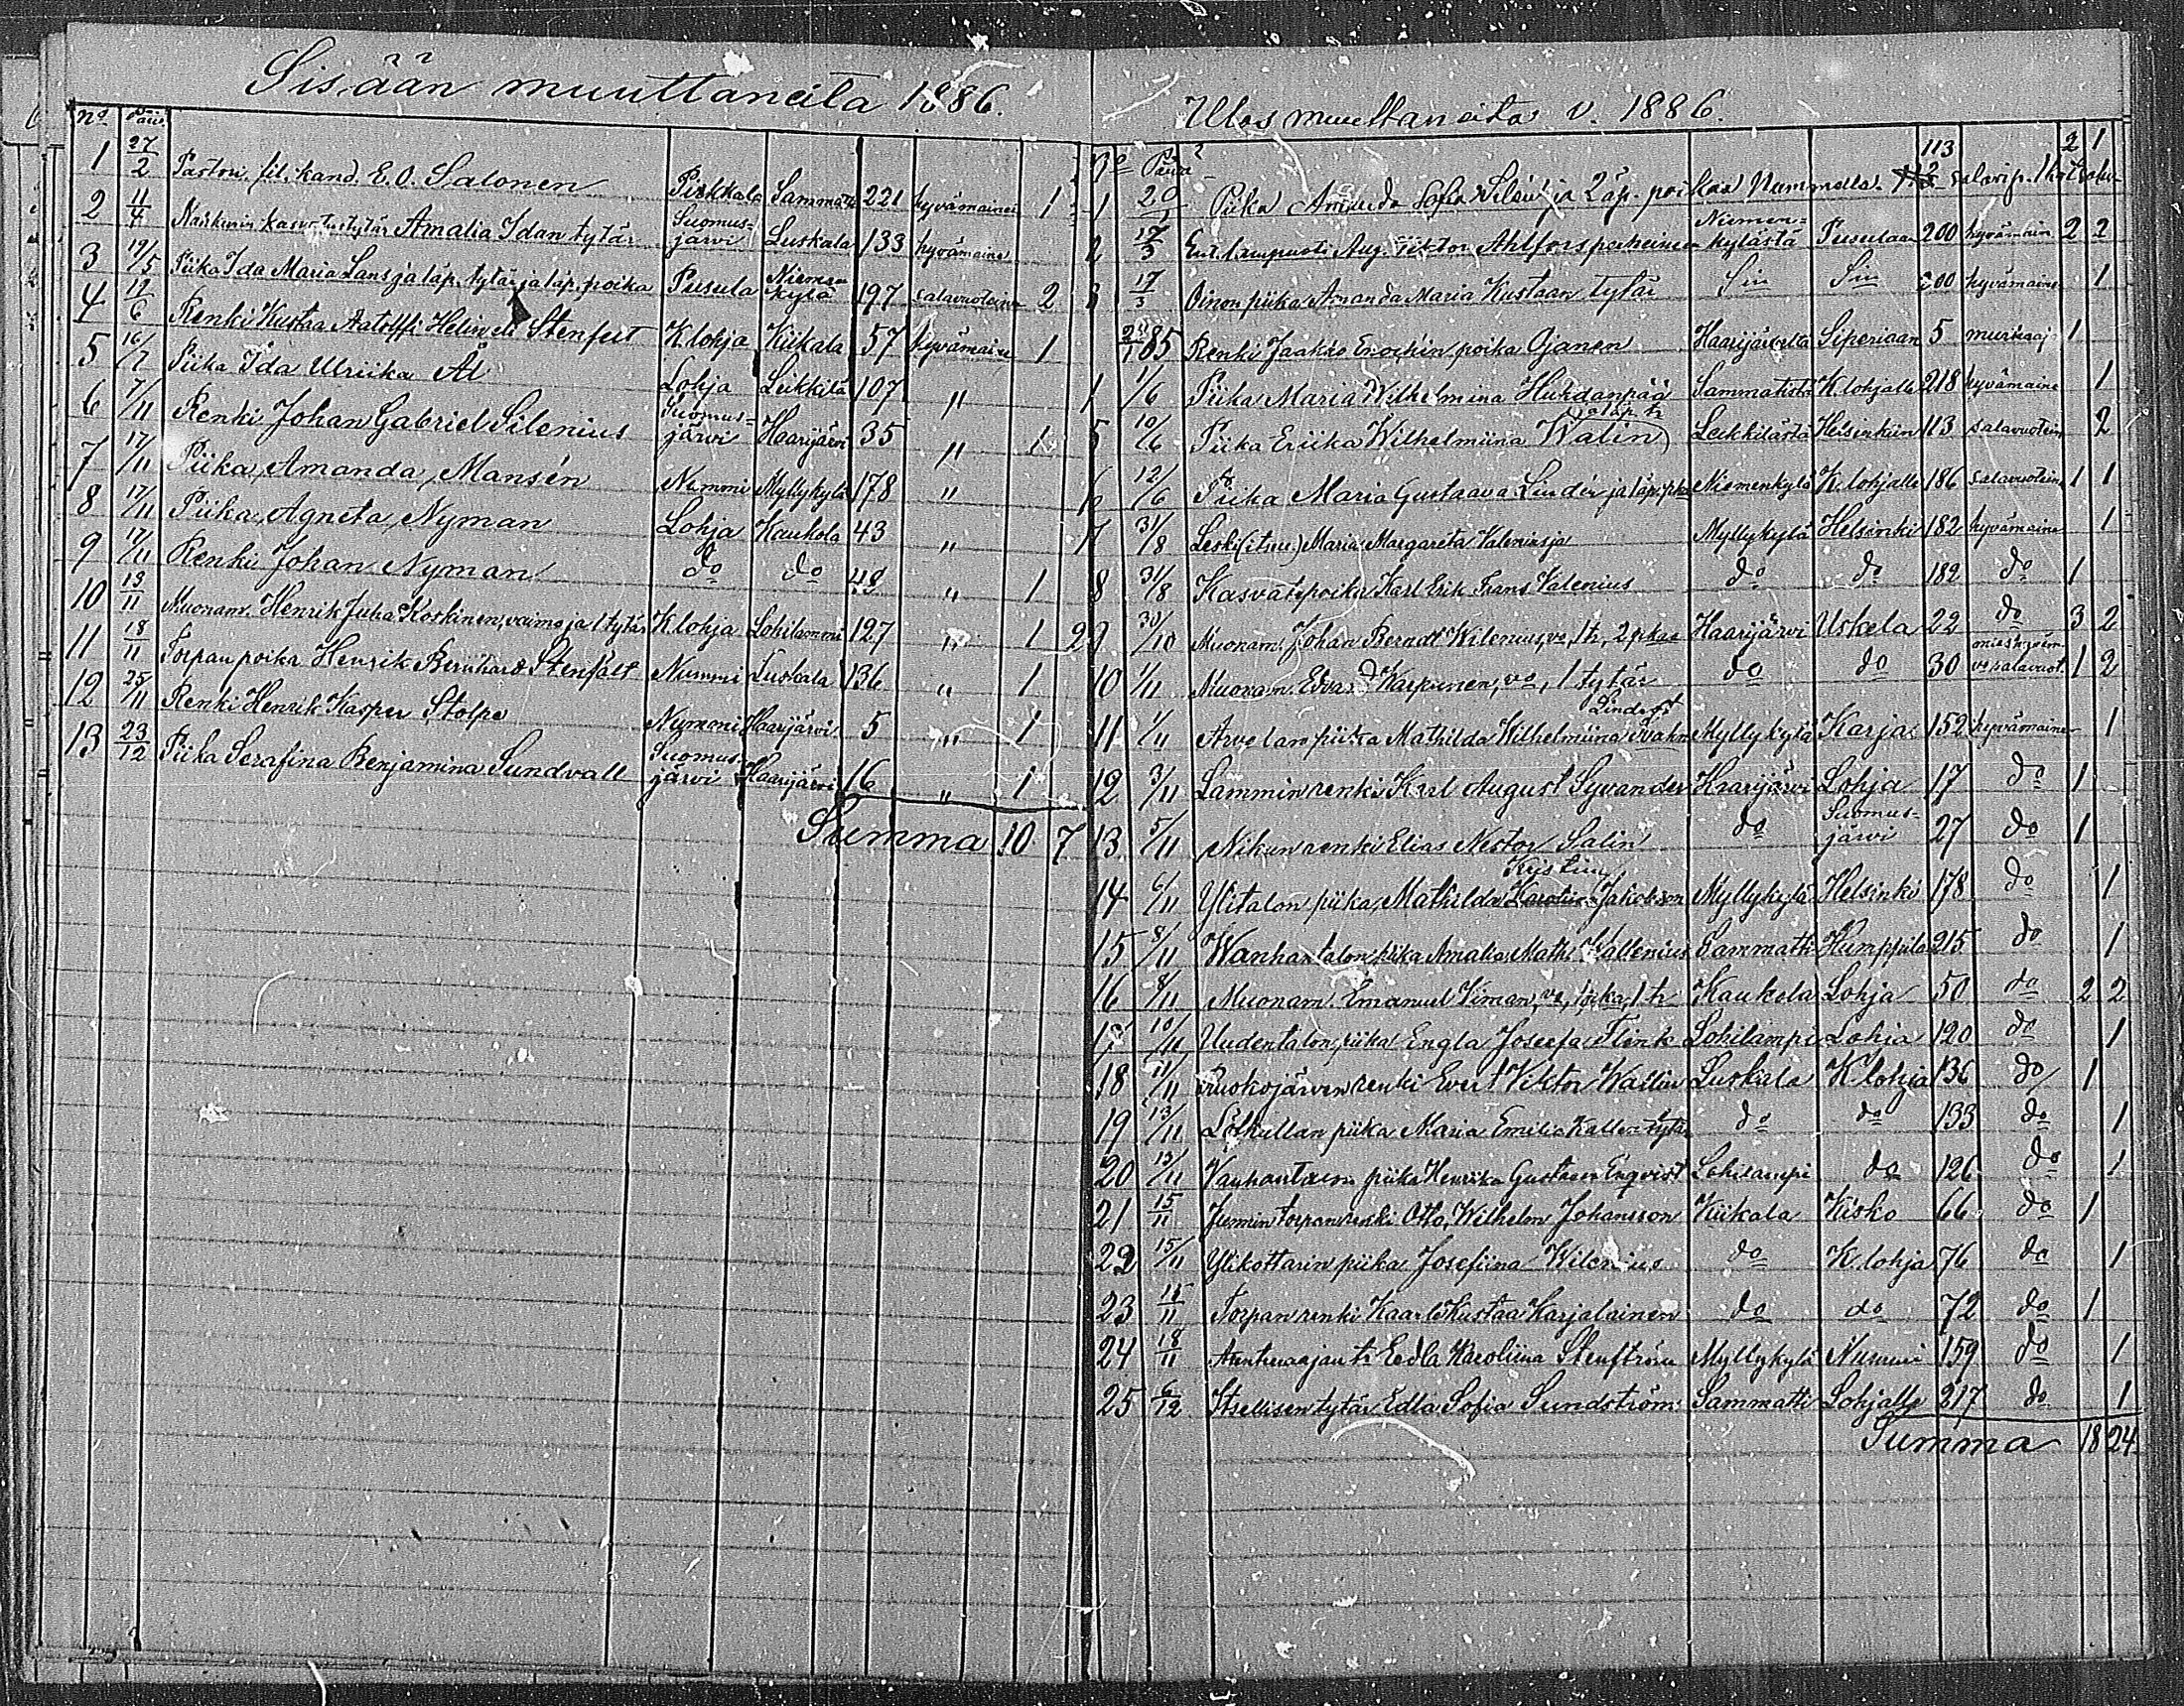 Sisään muuttaneita 1886.
No Päiv.
1 27/2 Pastori fil. kand. E. O. Salonen Pirkkala Sammatti 221 hyvämainen 1
2 11/4 kasvatustytär Amalia Idan tytär Suomusjärvi Luskala 133 hyvämaine
3 19/5 Piika Ida Maria Lans ja läp. tytär ja läp. poika Pusula Niemenkylä 197 salavuoteinen 2
4 12/6 Renki Kustaa Aatolffi Helin eli Stenfelt K lohja Kiikala 57 hyvämaine 1
5 16/7 Piika Ida Ulriika Ål Lohja Leikkilä 107 "
6 7/11 Renki Johan Gabriel Silenius Suomusjärvi Haarijärvi 35 " 1
7 17/11 Piika, Amanda, Mansén Nummi Myllykylä 178 "
8 17/11 Piika, Agneta, Nyman Lohja Kaukola 43 "
9 17/11 Renki Johan Nyman do do 43 " 1
10 13/11 Muonam. Henrik Juha Koskinen, vaimo ja 1 tytär K. lohja Lohilammi 127 " 1 2
11 18/11 Torpan poika Henrik Bernhard Stenfält Nummi Luskala 136 " 1
12 25/11 Renki Henrik Kasper Stolpe Nummi Haarijärvi 5 " 1
13 23/12 Piika Serafina Benjamina Sundvall Suomusjärvi Haarijärvi 16 " 1
Summa 10 7
Ulos muuttaneita v. 1886.
No Päivä
1 20/ Piika Amanda Sofia Silén ja 2 äp. poikaa Nummella. 113 salavip. 2 1
2 17/3 Ent. lampuoti Aug. Viktor Ahlfors perheineen Niemenkylästä Pusulaan 200 hyvämain 2 2
3 17/3 Oinon piika Amanda Maria Kustaan tytär Sin Sin 200 hyvämaine 1
85 Renki Jaakko Enochin poika Ojanen Haarijärveltä Siperiaan 5 1
1/6 Piika Maria Wilhelmina Huhdanpää Sammatista K. lohjalle 218 hyvämaine 1
5 10/6 Piika Eriika Wilhelmiina Walin ja läp. tr Leikkilästä Helsinkiin 113 salavuotein 2
6 12/6 Piika Maria Gustaava Lindér ja 1 äp. pka Niemenkylä K. lohjalle 186 salavuotein 1 1
7 31/8 Leski (itsn.) Maria Margareta Valenius ja Myllykylä Helsinki 182 hyvämaine 1
8 31/8 Kasvatepoika Karl Erik Frans Valenius do do 182 do 1
9 30/10 Muonam. Johan Berndt Wilenius, vo, 1 tr, 2 pkaa Haarijärvi Uskela 22 do 3 2
10 1/11 Muonam. Edvard Karpunen, vo, 1 tytär do do 30 mies hyväm. vo salavuot. 1 2
11 1/11 Arvelan piika Mathilda Wilhelmiina Myllykylä Karja 152 hyvämaine 1
12 3/11 Lammin renki Karl August Syvander Haarijärvi Lohja 17 do 1
13 5/11 Nikun renki Elias Nestor Salin do Suomusjärvi 27 do 1
Kristiin
14 6/11 Ylitalon piika, Mathilda Karolin Jakobson Myllykylä Helsinki 178 do 1
15 8/11 Wanhantalon piika Amalia Math. Kallenius Sammatti Humppila 215 do 1
16 8/11 Muonam. Emanuel Viman, vo, 1 poika, 1 tr Kaukola Lohja 50 do 2 2
17 10/11 Uudentalon piika Engla Josefa Flink Lohilampi Lohja 120 do 1
18 11/11 Ruokojärven renki Evert Viktor Wallin Luskala K lohja 136 do 1
19 13/11 Lölkullan piika Maria Emilia Kallen tytär do do 133 do 1
20 13/11 Vanhantalon piika Henrika Gustava Enqvist Lohilampi do 126 do 1
21 15/11 Junnin torpan renki Otto Wilhelm Johansson Kiikala Kisko 66 do 1
22 15/11 Ylikottarin piika Josefiina Wilenius do K. lohja 76 do 1
23 15/11 Torpan renki Kaarlo Kustaa Harjalainen do do 72 do 1
24 18/11 Asentavaajan tr Eedla Karoliina Stenström Myllykylä Nummi 159 do 1
25 6/12 Itsellisen tytär Edla Sofia Sundström Sammatti Lohjalle 217 do 1
Summa 18 24